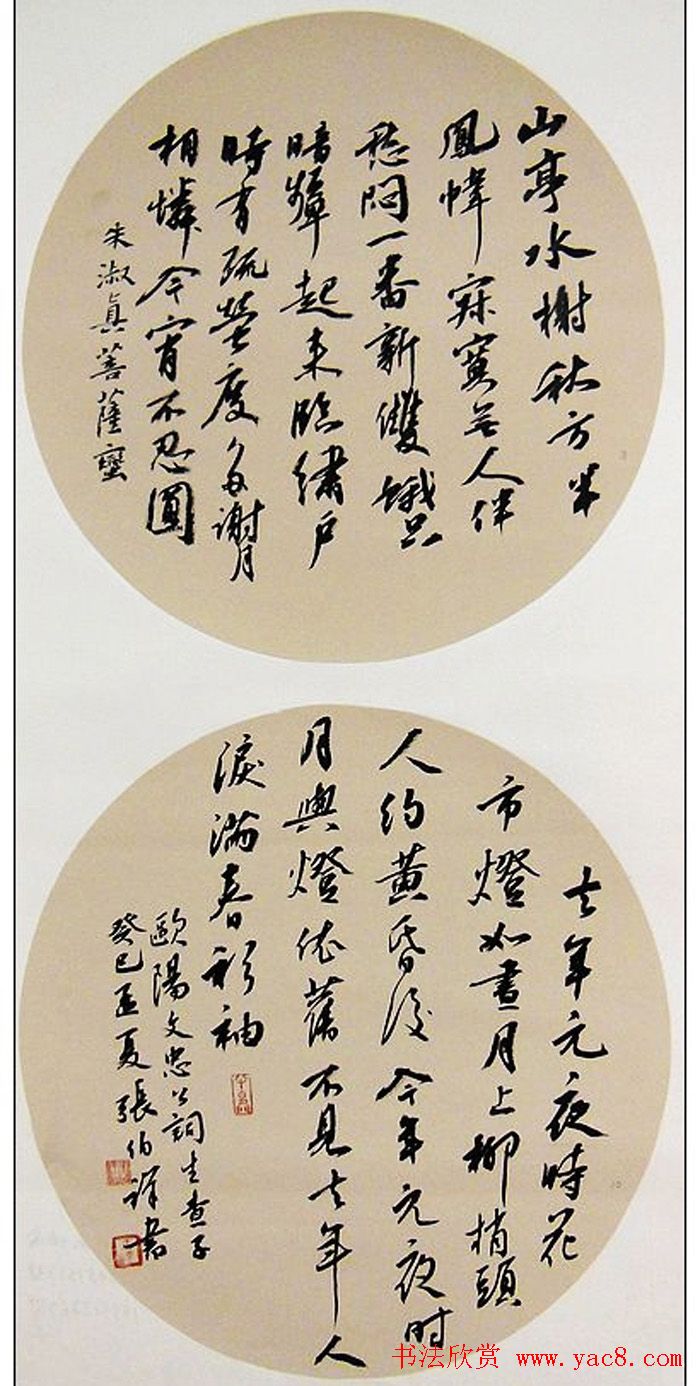 山亭水榭秋方半
鳳幃寂寞無人伴
愁悶一番新雙蛾只
暗顰起來臨繡戶
時有疏螢度多謝月
相憐今宵不忍圓
朱淑真菩薩蠻
去年元夜時花
市燈如晝月上柳梢頭
人約黃昏後今年元夜时
月與燈依舊不見去年人
淚滿春衫袖
歐陽文忠公詞生查子
癸巳孟夏張伯詳書
书法欣赏 www.yac8.com